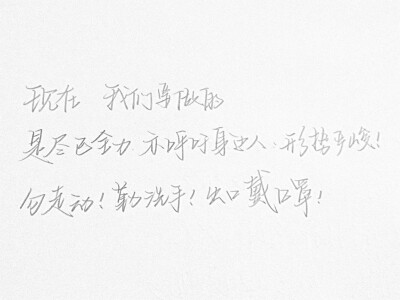 现在 我们做的
是尽己全力 亦呼吁身边人,形势严峻!
勿走动!勤洗手!出门戴口罩!